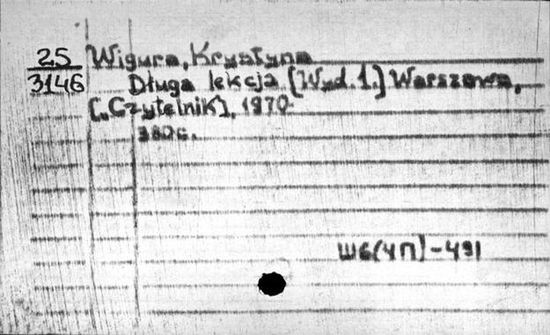 25
3146
Wigura, Krystyna
Długa lekcja [Wyd. 1.] Warszawa,
[„Czytelnik], 1970
380с.
Ш6(4П)-491